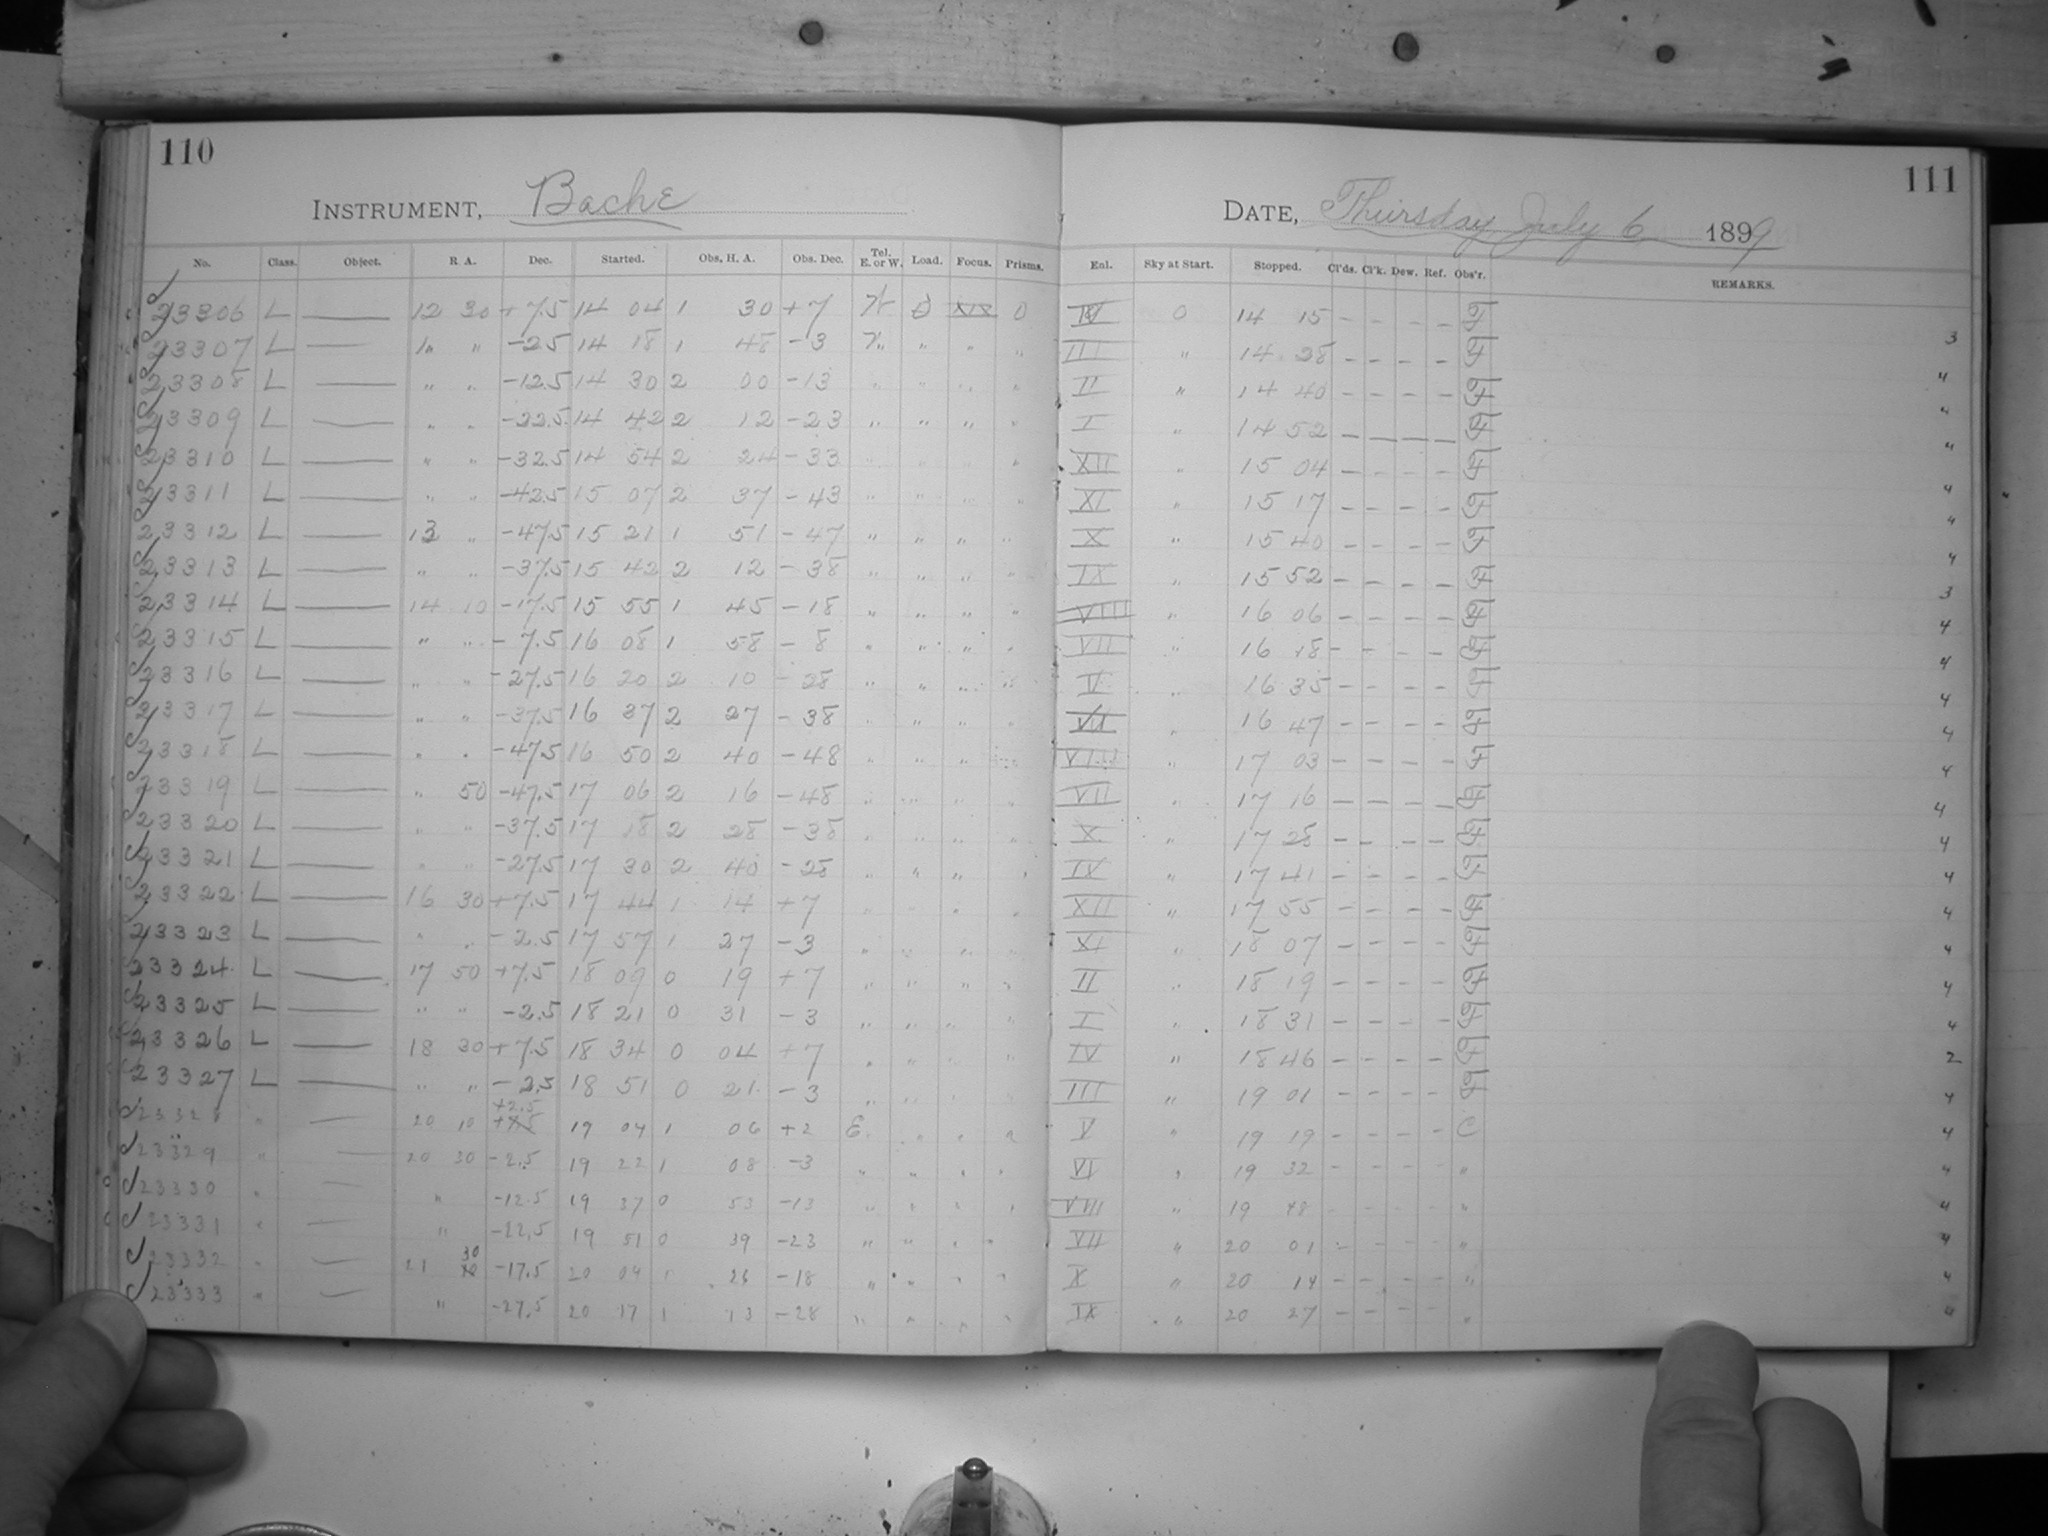 110
111
INSTRUMENT, Bache
DATE, Thursday July 6 1899
No. Class. Object. R. A. Dec. Started. Obs. H. A. Obs. Dec. Tel. E. or W. Load. Focus. Prisms. Enl. Sky at Start. Stopped. Cl'ds. Cl'k. Dew. Ref. Obs'r. REMARKS.
23306 L — 12 30 +7.5 14 04 1 30 +7 W 0 XIX 0 IV 0 14 15 – – – – F 3
23307 L — 12 " -2.5 14 18 1 48 -3 W " " " III " 14 28 – – – – F 4
23308 L — " " -12.5 14 30 2 00 -13 " " " " II " 14 40 – – – – F 4
23309 L — " " -22.5 14 42 2 12 -23 " " " " I " 14 52 – – – – F 4
23310 L — " " -32.5 14 54 2 24 -33 " " " " XII " 15 04 – – – – F 4
23311 L — " " -42.5 15 07 2 37 -43 " " " " XI " 15 17 – – – – F 4
23312 L — 13 " -47.5 15 21 1 51 -47 " " " " X " 15 40 – – – – F 4
23313 L — " " -37.5 15 42 2 12 -38 " " " " IX " 15 52 – – – – F 3
23314 L — 14 10 -17.5 15 55 1 45 -18 " " " " VIII " 16 06 – – – – F 4
23315 L — " " -7.5 16 08 1 58 -8 " " " " VII " 16 18 – – – – F 4
23316 L — " " -27.5 16 20 2 10 -28 " " " " V " 16 35 – – – – F 4
23317 L — " " -37.5 16 37 2 27 -38 " " " " VII " 16 47 – – – – F 4
23318 L — " " -47.5 16 50 2 40 -48 " " " " VIII " 17 03 – – – – F 4
23319 L — " 50 -47.5 17 06 2 16 -48 " " " " VII " 17 16 – – – – F 4
23320 L — " " -37.5 17 18 2 28 -38 " " " " X " 17 28 – – – – F 4
23321 L — " " -27.5 17 30 2 40 -28 " " " " IX " 17 41 – – – – F 4
23322 L — 16 30 +7.5 17 44 1 14 +7 " " " " XII " 17 55 – – – – F 4
23323 L — " " -2.5 17 57 1 27 -3 " " " " XI " 18 07 – – – – F 4
23324 L — 17 50 +7.5 18 09 0 19 +7 " " " " II " 18 19 – – – – F 4
23325 L — " " -2.5 18 21 0 31 -3 " " " " I " 18 31 – – – – F 4
23326 L — 18 30 +7.5 18 34 0 04 +7 " " " " IV " 18 46 – – – – F 2
23327 L — " " -2.5 18 51 0 21 -3 " " " " III " 19 01 – – – – F 4
23328 " — 20 10 +2.5 19 04 1 06 +2 E " " " V " 19 19 – – – – C 4
23329 " — 20 30 -2.5 19 22 1 08 -3 " " " " VI " 19 32 – – – – " 4
23330 " — " -12.5 19 37 0 53 -13 " " " " VIII " 19 48 – – – – " 4
23331 " — " -22.5 19 51 0 39 -23 " " " " VII " 20 01 – – – – " 4
23332 " — 21 30 -17.5 20 04 1 26 -18 " " " " X " 20 14 – – – – " 4
23333 " — " -27.5 20 17 1 13 -28 " " " " IX " 20 27 – – – – " 4